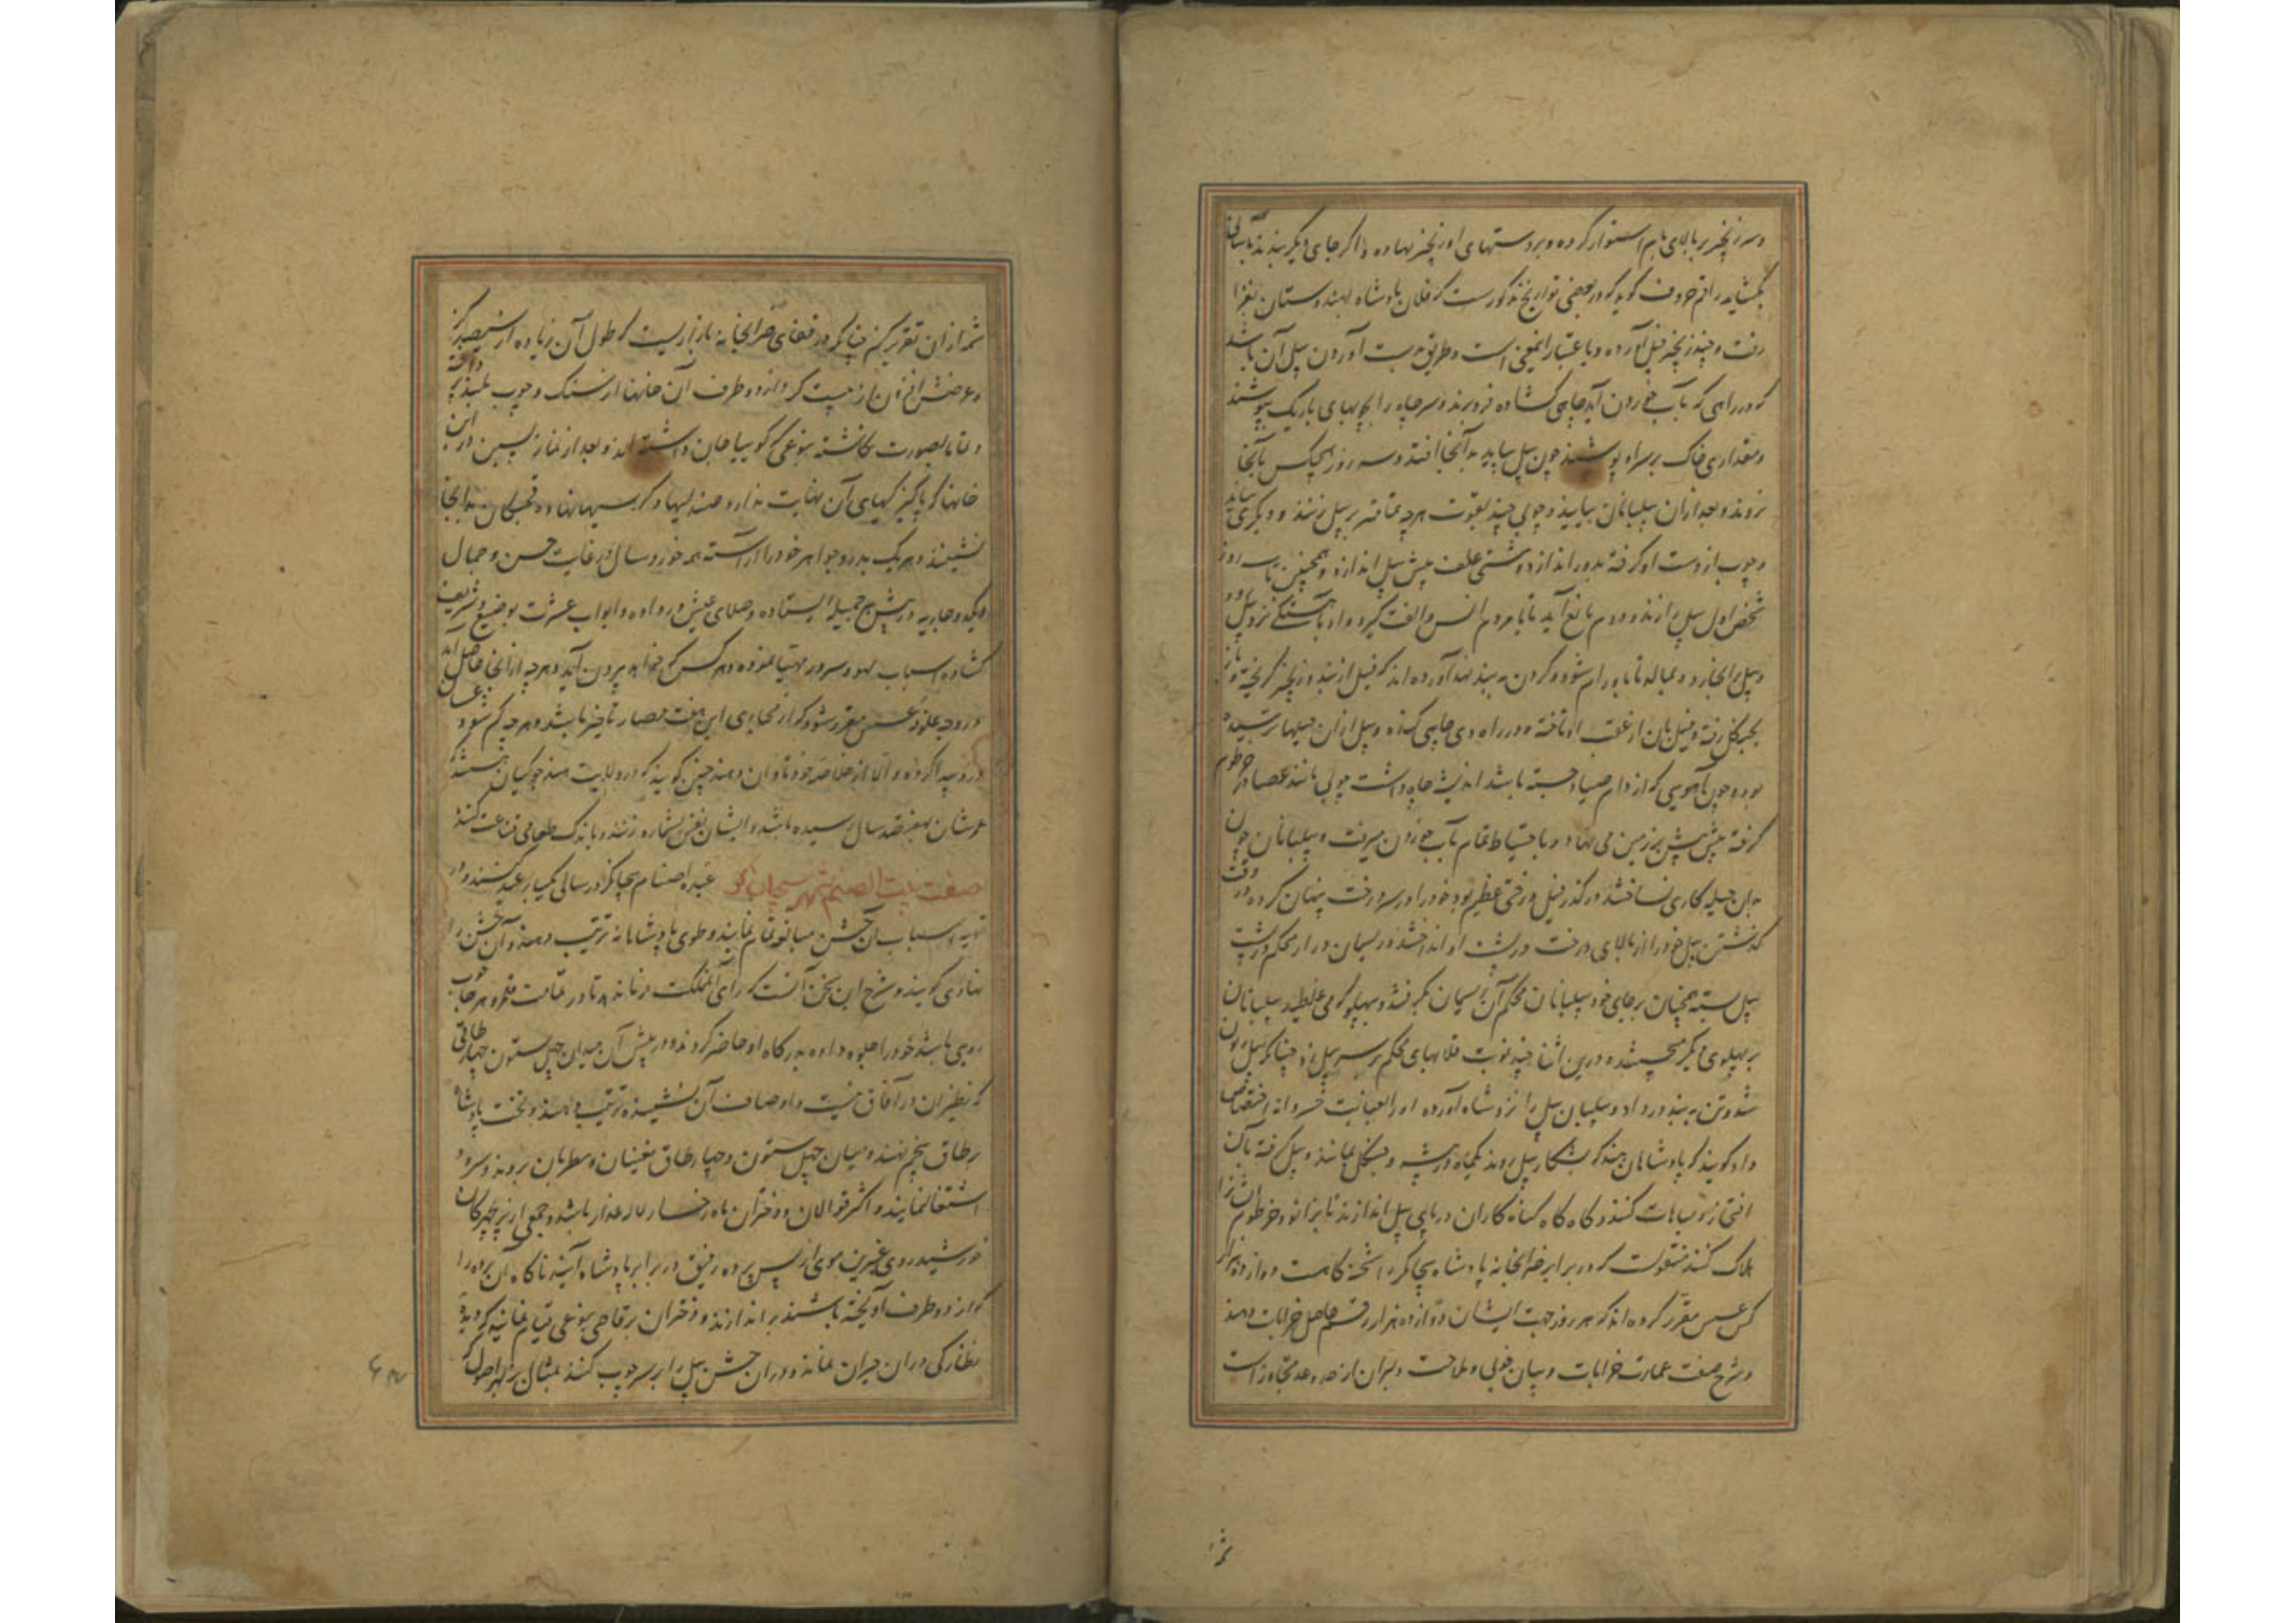 و سر زنجیر بر بالای بام استوار کرده و بر دستهای او زنجیر نهاده و اگر جای دیگر بندند بآسانی
بگشاید راقم حروف گوید که در بعضی تواریخ مذکورست که فلان پادشاه بهندوستان بغزا
رفت و چند زنجیر فیل آورده و باعتبار انمعنی است و طریق بدست آوردن پیل آن باشد
که در راهی که بآب خوردن آید چاهی گشاده فرو برند و سر چاه را بچوبهای باریک بپوشند
و مقداری خاک بر سر آن پوشند چون پیل بیاید بدآنجا افتد و سه روز هیچکس بآنجا
نرود و بعد از آن پیلبانان بیایند و چوبی چند بقوت هرچه تمامتر بر پیل زنند و دیگری بیاید
و چوب از دست او گرفته بدور اندازد و مشتی علف پیش پیل اندازد و همچنین تا سه روز
شخص اول پیل را زند و دوم مانع آید تا با مردم انس و الفت گیرد و او بآهستگی نزد پیل رود
و پیل را بخارد و بمالد تا بدو رام شود و گردن به بند نهد آورده اند که فیلی از بند و زنجیر گریخته و باز
بجنگل رفته و فیل بان از عقب او تاخته و در راه وی چاهی کنده و پیل از آن حیلها ترسیده
بود و چون آهویی که از دام صیاد جسته باشد اندیشه چاه داشت چوبی مانند عصا در خرطوم
گرفته پیش پیش بر زمین می نهاد و باحتیاط تمام بآب خوردن میرفت و پیلبانان چون
بدان حیله کاری نساختند در گذر فیل درختی عظیم بود خود را در سر درخت پنهان کرده در وقت
گذشتن پیل خود را از بالای درخت در پشت او انداختند و ریسمان دراز محکم در پشت
پیل بسته همچنان بر جای خود پیلبانان محکم آن ریسمان بگرفتند و بهر پهلو که می غلطید پیلبانان
بر پهلوی دیگر می جستند درین اثنا چند نوبت قلابهای محکم بر سر پیل زد چنانکه پیل زبون
شد و تن به بند در داد و پیلبان پیل را نزد شاه آورده او را بعنایت خسروانه اختصاص
داد گویند که پادشاهان هند که بشکار پیل روند یکماه در بیشه و جنگل بمانند و پیل گرفته بآن
افتخار و مباهات کنند و گاه گاه گناه کاران در پای پیل اندازند تا بزانو و خرطوم ایشان را
هلاک کنند منقولست که در برابر ضرابخانه پادشاه بیجانگر شحنه گاهست و دوازده هزار
کس عسس مقرر کرده اند که هر روز جهت ایشان دوازده هزار از قسم حاصل خرابات دهند
و شرح صفت عمارت خرابات و بیان خوبی و ملاحت دلبران از حد و عد متجاوز است
شمه از آن تقریر کنیم چنانکه در قفای ضرابخانه بازاریست که طول آن زیاده از سیصد گز
و عرضش افزون از بیست گز و از دو طرف آن خانها از سنگ و چوب بلند برداخته
خانها که پاکیزگیهای آن نهایت ندارد صندلیها و کرسیها نهاده بدانجا
نشینند و هر یک بدر و جواهر خود را آراسته همه خورد سال در غایت حسن و جمال
و یکدو جاریه در پیش هر جمیله ایستاده و صلای عیش در داده و ابواب عشرت بوضیع و شریف
گشاده و اسباب لهو و سرور مهیا نموده و هر کس که خواهد بیرون آید و هرچه از آنجا حاصل آید
در وجه علوفه عسس مقرر شود کار محاربی این هفت حصار باشد و هرچه گم شود
پیدا کرده و الا از خاصه خود تاوان دهند چنین گویند که در ولایت هند جوکیان هستند که
عمر شان بهفتصد سال رسیده باشد و ایشان نفس بشماره زنند و باندک طعامی قناعت کنند
صفت بیت الصنم شهر بیجانگر عبده اصنام بیجانگر در سالی یکبار عید کنند و در
تهیه اسباب آن جشن مبالغه تمام نمایند و طوی پادشاهانه ترتیب دهند و آن جشن را
مهانادی گویند و شرح این سخن آنست که رای آن مملکت فرمان دهد تا در تمامت قلمرو هرجا خوب
رویی باشد خود را جلوه داده بدرگاه او حاضر گردند و در پیش آن میدان چهل ستون چهار طاقی
که نظیر آن در آفاق نیست و اوصاف آن نشنیده ترتیب دهند و تخت پادشاه
بر طاق پنجم نهند و میان چهل ستون و چهار طاق مغنیان و مطربان بروند و سرود
اشتغال نمایند و اکثر قوالان و دختران ماه رخسار لاله عذار باشند و جمعی از پریچهرگان
خورشید روی عنبرین موی از پس پرده رقیق در برابر پادشاه آیند ناگاه آن پرده را
که از دو طرف آویخته باشند بر اندازند و دختران برقاصی بنوعی قیام نمایند که دیده
نظارگی در آن حیران بماند و در آن جشن پیل را بر سر چوب کنند بمثال بز لهو اصول که
شمه